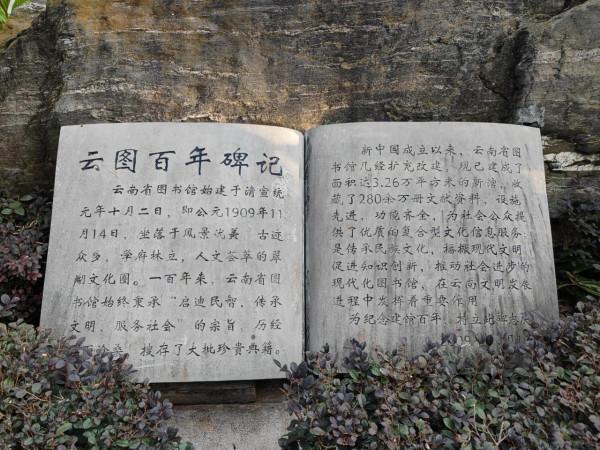 云图百年碑记
云南省图书馆始建于清宣统
元年十月二日，即公元1909年11
月14日，坐落于风景优美、古迹
众多，学府林立，人文荟萃的翠
湖文化圈。一百年来，云南省图
书馆始终秉承“启迪民智，传承
文明，服务社会”的宗旨，历经
沧桑，搜存了大批珍贵典籍。
新中国成立以来，云南省图
书馆几经扩充改建，现已建成了
面积达3.26万平方米的新馆，收
藏了280余万册文献资料，设施
先进，功能齐全，为社会公众提
供了优质的复合型文化信息服务；
是传承民族文化，播撒现代文明，
促进知识创新，推动社会进步的
现代化图书馆，在云南文明发展
进程中发挥着重要作用。
为纪念建馆百年，特立此碑志庆